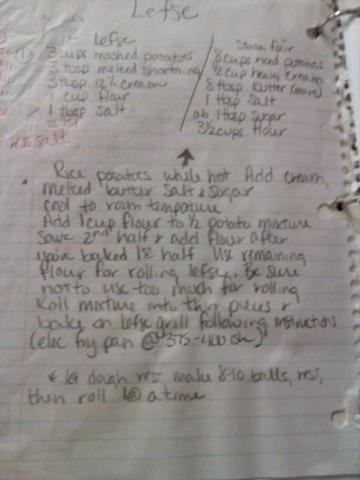 Lefse
lefse
3 cups mashed potatoes
3 tbsp melted shortning
3 tbsp 12% cream
1 cup flour
1 tbsp salt
State fair
8 cups riced potatoes
1/2 cup heavy cream
8 tbsp butter (more)
1 tbsp salt
ab 1 tbsp sugar
3 1/2 cups flour
salt
Rice potatoes while hot Add cream,
melted butter salt & sugar
cool to room tempature
Add 1 cup flour to 1/2 potato mixture
save 2nd half & add flour after
you've baked 1st half Use remaining
flour for rolling lefse. Be sure
not to use too much for rolling
Roll mixture into thin pieces &
bake on lefse grill following instructions
(elec fry pan @ 375-400 ish)
* let dough rest make 8-10 balls, rest,
then roll 1 @ a time